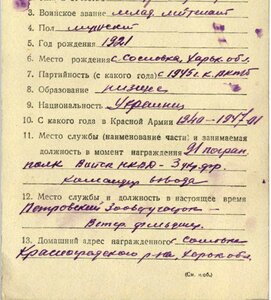 3. Воинское звание млад. лейтенант
4. Пол мужской
5. Год рождения 1921
6. Место рождения с. Сословка, Харьк. обл.
7. Партийность (с какого года) с 1945 г. к. ВКПб
8. Образование низшее
9. Национальность Украинец
10. С какого года в Красной Армии 1940-1947
11. Место службы (наименование части) и занимаемая
должность в момент награждения 91 погран.
полк Войск НКВД - 3 Укр. фр.
командир взвода
12. Место службы и должность в настоящее время
Петровский Зооветучасток -
Ветер. фельдшер
13. Домашний адрес награжденного с.
Красноградского р-на, Харьк. обл.
(См. н/об.)